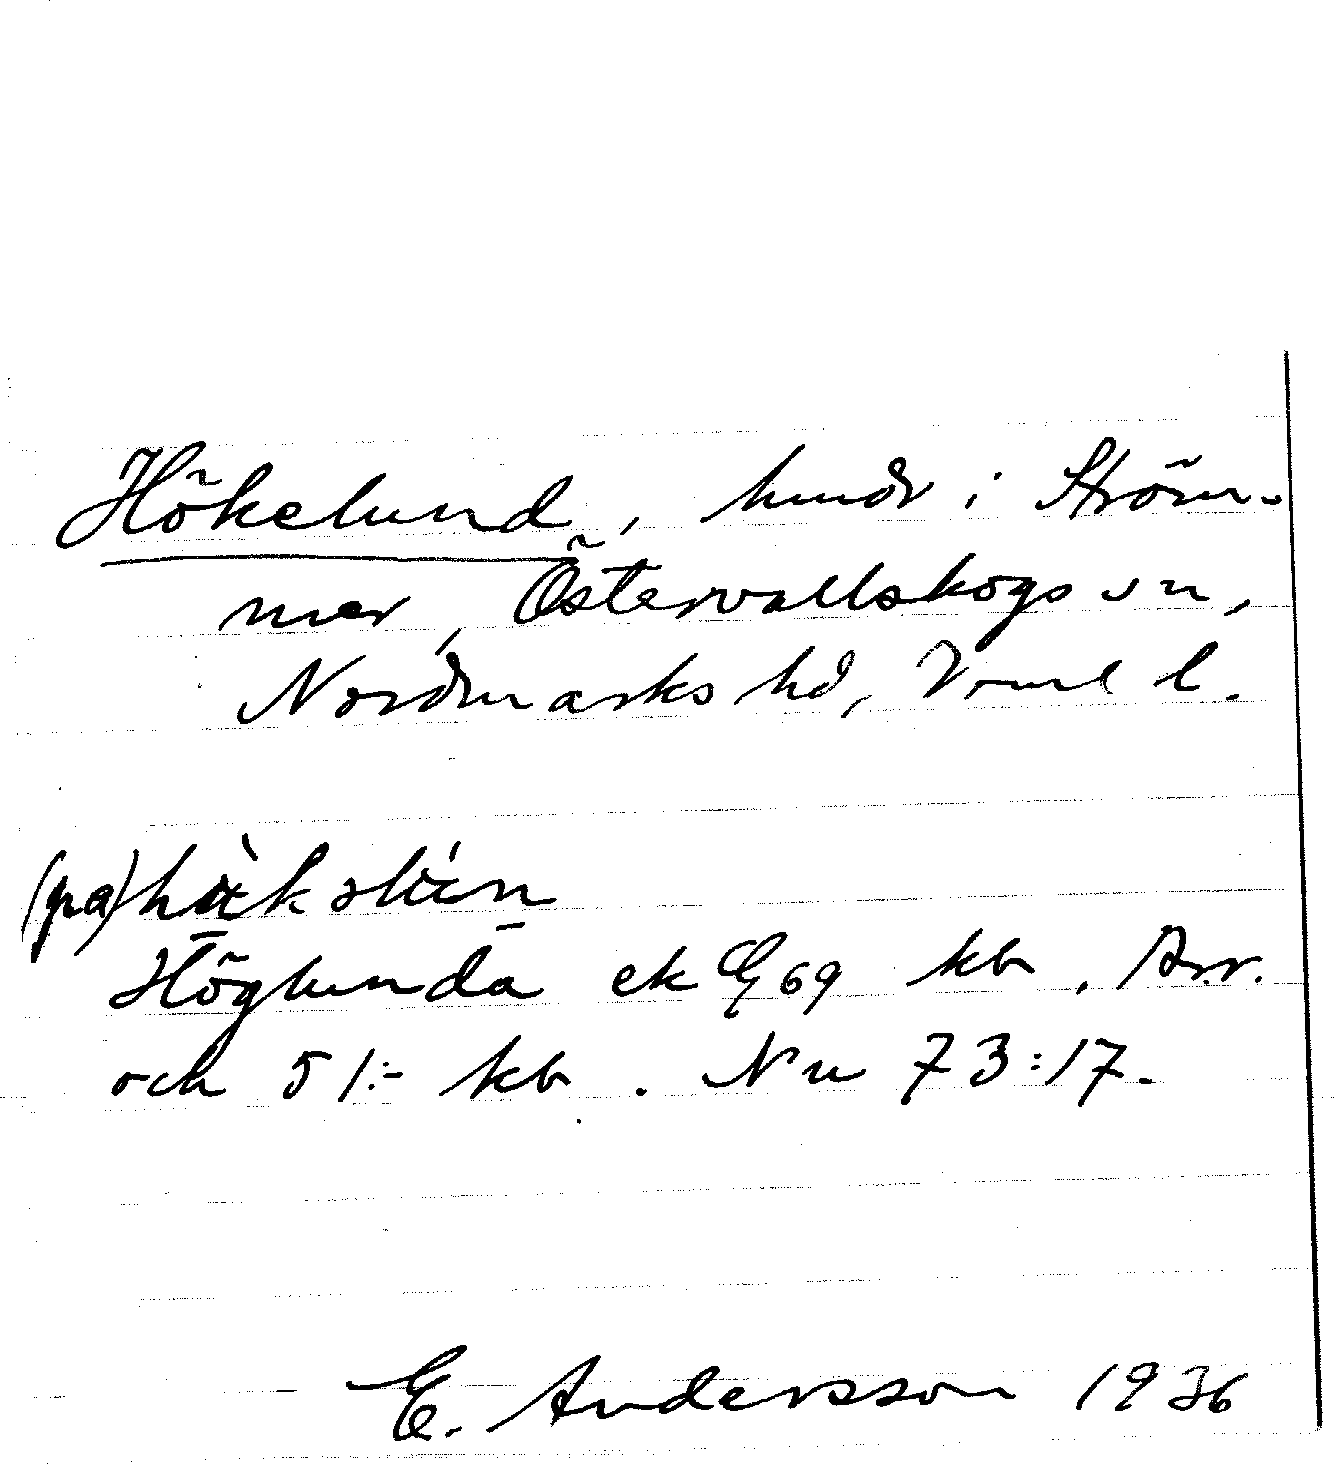 Hökelund, hmdr i Ström-
mer, Östervallskogs sn,
Nordmarks hd, Vrml l.
(på)
Höglunda ek E 69 kb, Arr.
och 51:- kb. Nu 73:17.
E. Andersson 1936